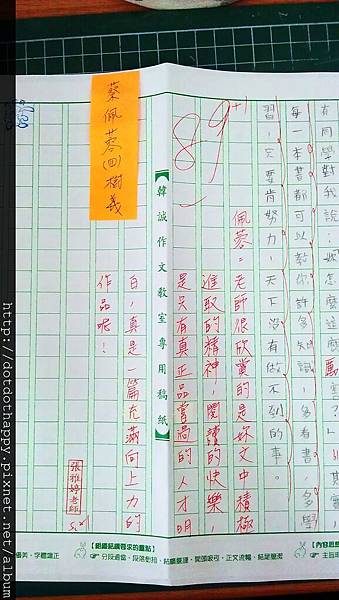 有同學對我說:妳怎麼這麼厲害?
每一本書都可以教你許多知識,多看書,多學
習,只要肯努力,天下沒有做不到的事。
89+1
佩蓉:老師很欣賞的是妳文中積極
進取的精神,閱讀的快樂,
是只有真正品嘗過的人才明
白,真是一篇充滿向上力的
作品呢!
張雅婷老師
【韓誠作文教室專用稿紙】
蔡佩蓉(四)樹義
【組織結構要求的重點】
http://dotdothappy.pixnet.net/album